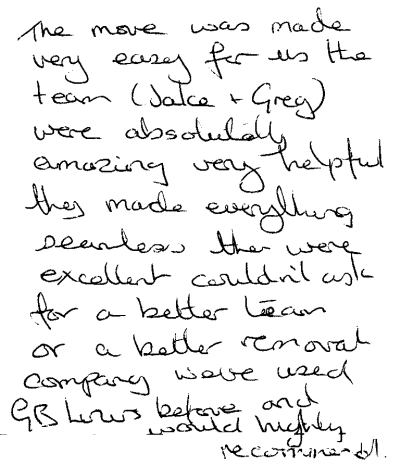 The move was made
very easy for us the
team (Jake + Greg)
were absolutely
amazing very helpful
they made everything
seamless they were
excellent couldn't ask
for a better team
or a better removal
company weve used
GB Liners before and
would highly
recommend.